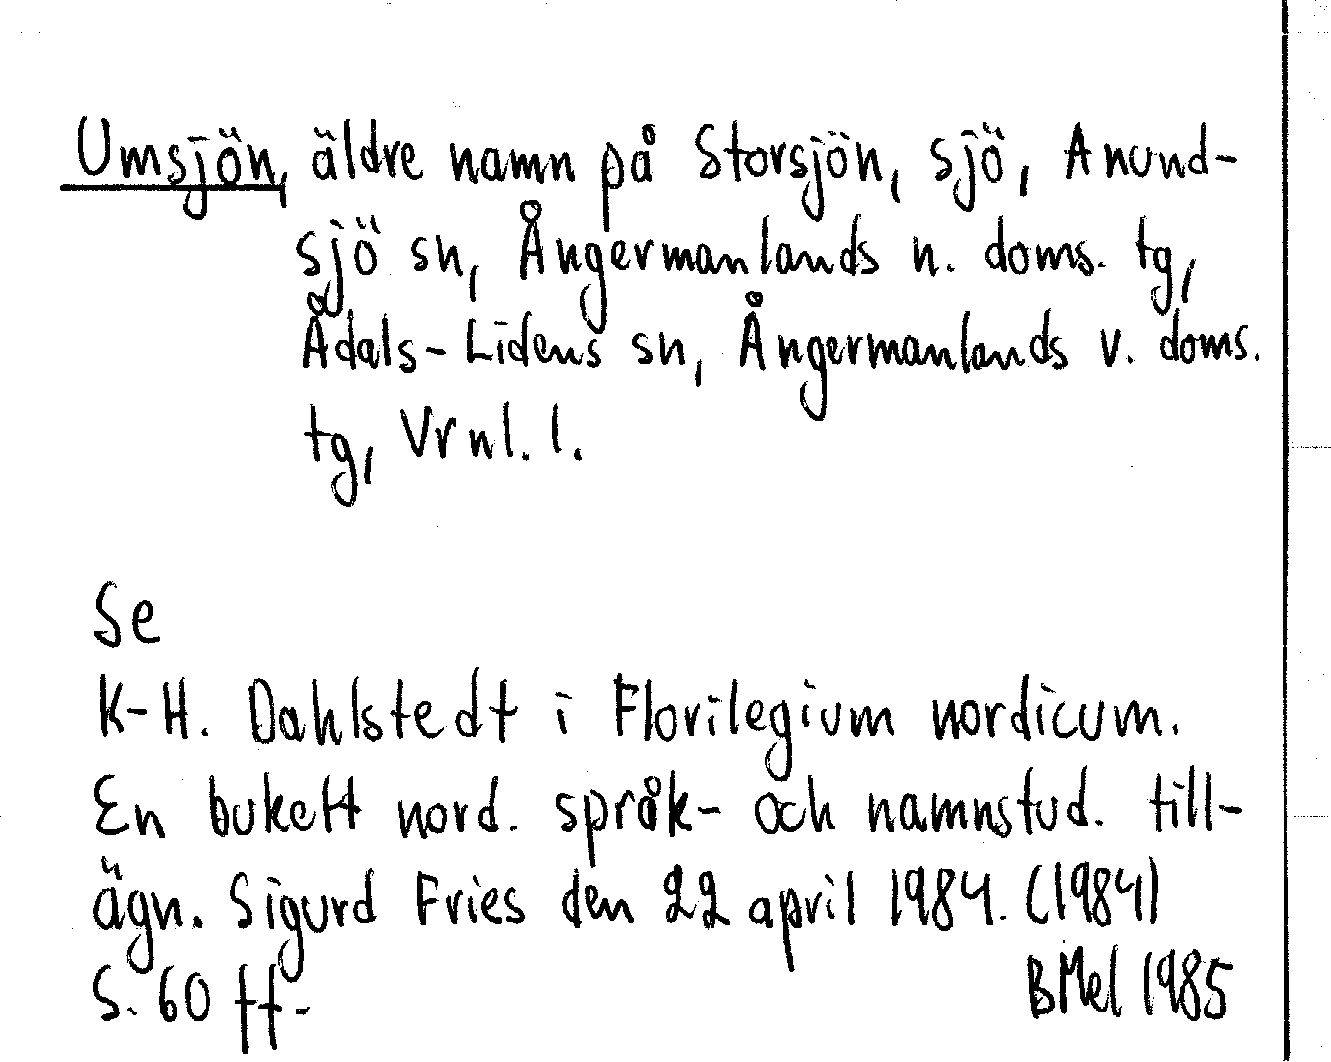 Umsjön, äldre namn på Storsjön, sjö, Anund-
sjö sn, Ångermanlands n. doms. tg,
Ådals-Lidens sn, Ångermanlands v. doms.
tg, Vrnl. l.
Se
K-H. Dahlstedt i Florilegium nordicum.
En bukett nord. språk- och namnstud. till-
ägn. Sigurd Fries den 22 april 1984. (1984)
S. 60 ff.
BMel 1985